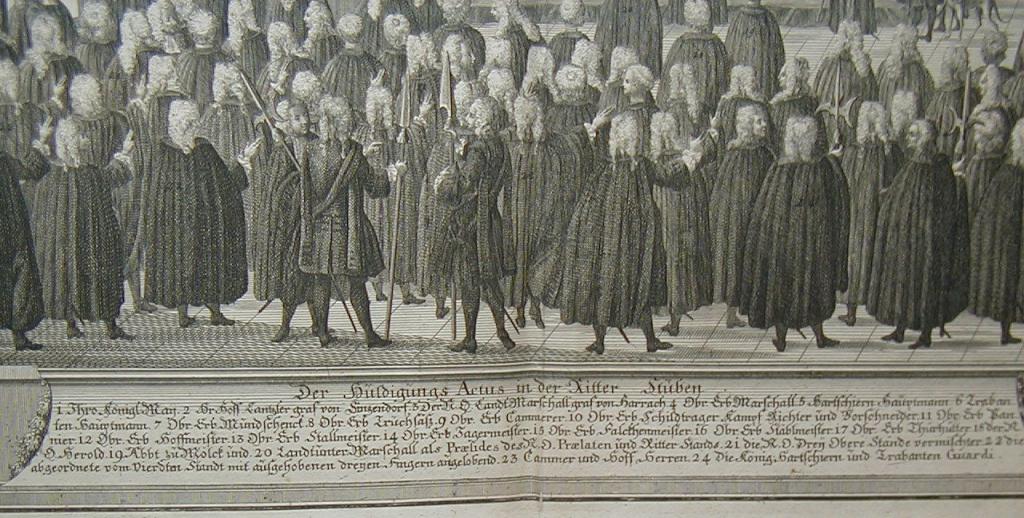 Der Huldigungs Actus in der Ritter Stuben
1 Ihro Königl May. 2 Obr Hoff Cantzler graf von Sintzendorf. 3 Der N. Ö. Landt Marschall graf von Harrach 4 Obr Erb Marschall. 5 Hartschiern Hauptmann 6 Traban
ten Hauptmann. 7 Obr Erb Mundschenck. 8 Obr Erb Truchsaß. 9 Obr Erb Cammerer. 10 Obr Erb Schildtrager, Kampf Richter und Vorschneider. 11 Obr Erb Pan
nier. 12 Obr Erb Hoffmeister. 13 Obr Erb Stallmeister. 14 Obr Erb Jagermeister. 15 Obr Erb Falckhenmeister. 16 Obr Erb Stablmeister 17 Obr Erb Thurhütter 18 der N.
Ö. Herold. 19 Abbt zu Mölck und 20 Landtunter Marschall als Præsides des N. Ö. Prælaten und Ritter Stands. 21 die N. Ö. Drey Obere Stände vermischter 22 die
abgeordnete vom Vierdten Standt mit aufgehobenen dreyen Fingern angelobend. 23 Cammer und Hoff Herren. 24 Die König. Hartschiern und Trabanten Guardi.